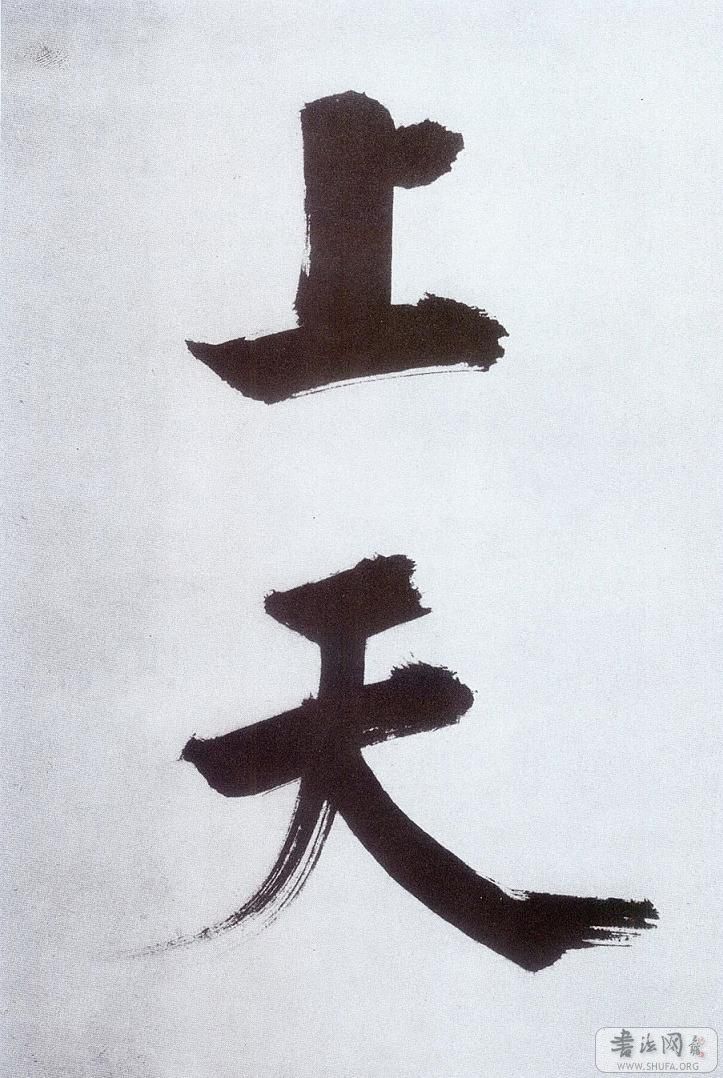 上天
書法网
WWW.SHUFA.ORG